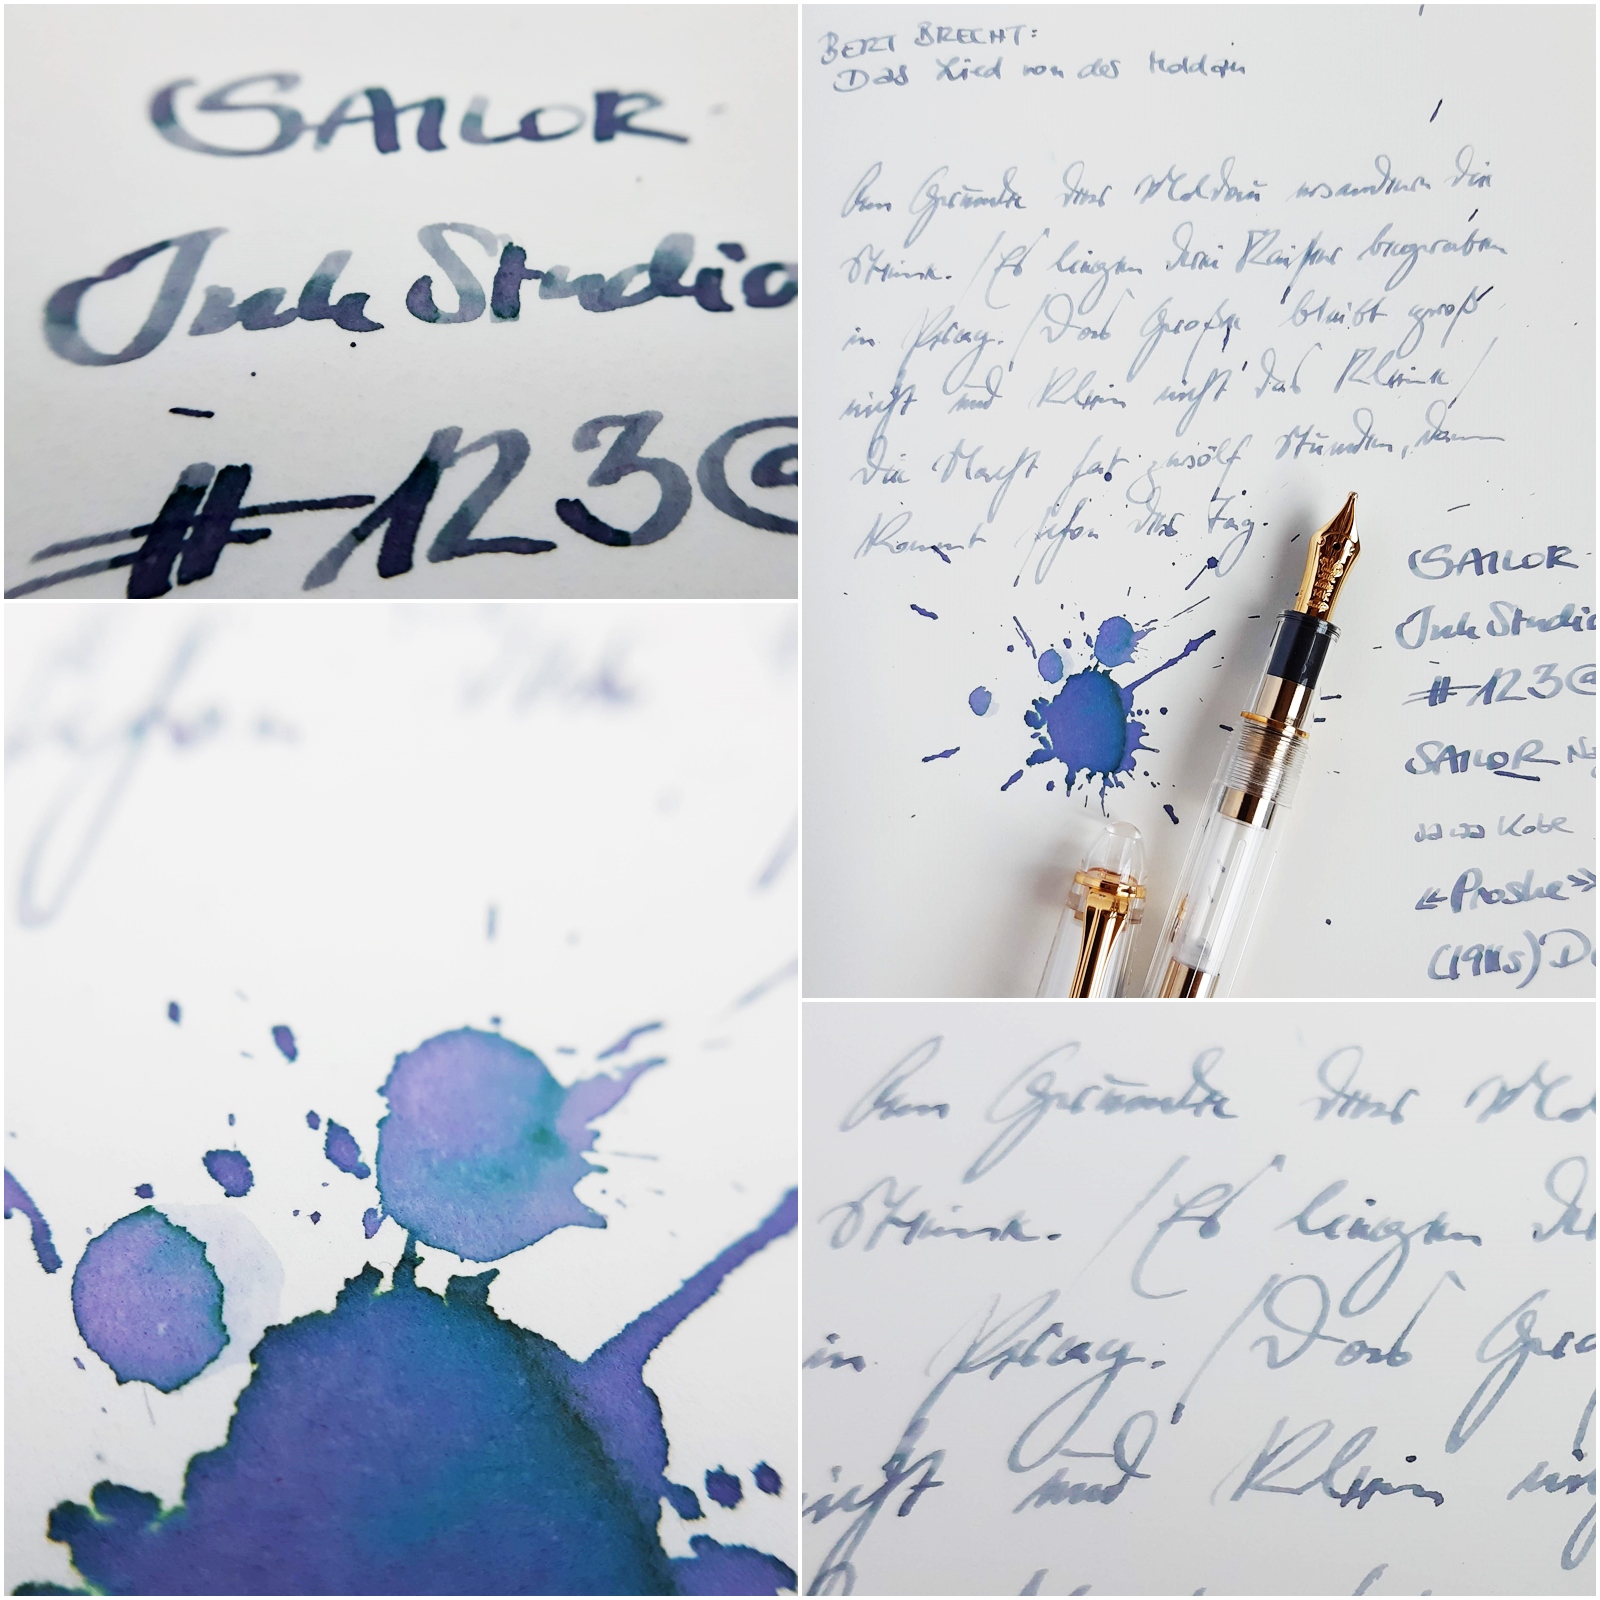 SAILOR
Ink Studio
#123@
BERT BRECHT:
Das Lied von der Moldau
Am Grunde der Moldau wandern die
Steine. / Es liegen drei Kaiser begraben
in Prag. / Das Große bleibt groß
nicht und klein nicht das Kleine /
Die Nacht hat zwölf Stunden, dann
kommt schon der Tag.
SAILOR
Ink Studio
#123@
SAILOR
Kobe
«Proske»
Am Grunde der Mol
Steine. / Es liegen
in Prag. / Das Gro
nicht und Klein